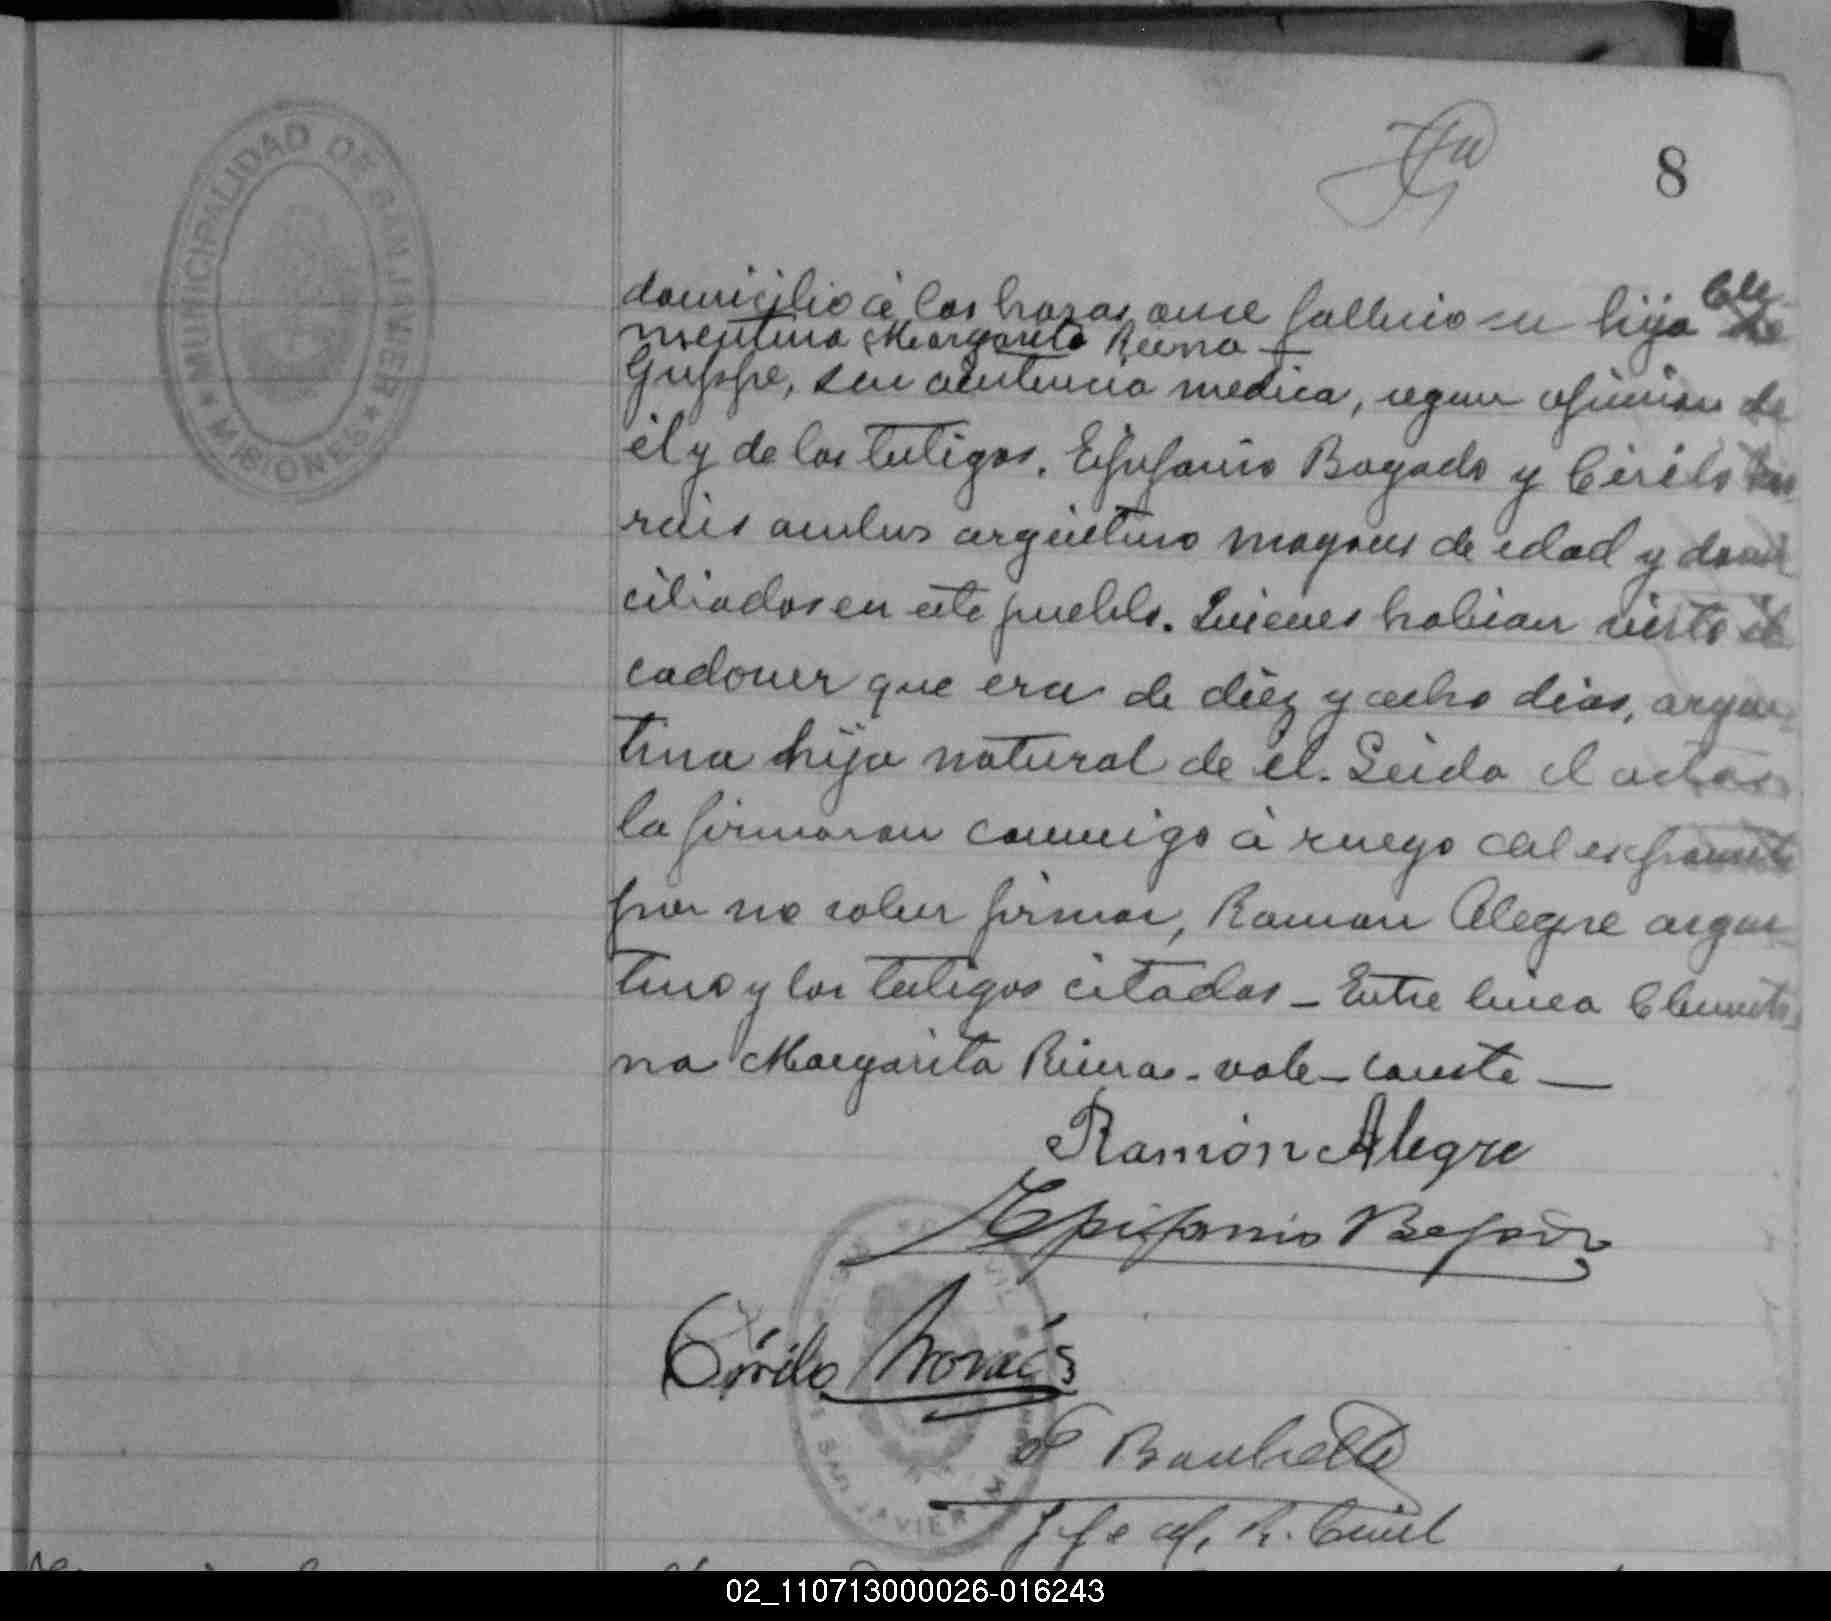 MUNICIPALIDAD DE SAN JAVIER
★ MISIONES ★
8
domicilio á las horas once fallecio su hija Cle-
mentina Margarita Reina —
Guppe, sin asistencia medica, segun opinion de
él y de los testigos. Epifanio Bogado y Cirilo
rais ambos argentino mayores de edad y domi
ciliados en este pueblo. Quienes habian visto el
cadaver que era de diez y ocho dias, argen-
tina hija natural de el. Leida el acta
la firmaron conmigo á ruego del exponente
por no saber firmar, Ramon Alegre argen
tino y los testigos citados - Entre linea Clementi-
na Margarita Reina - vale - conste —
Ramón Alegre
Epifanio Bogado
Cirilo
SAN JAVIER
Jefe del R. Civil
02_110713000026-016243